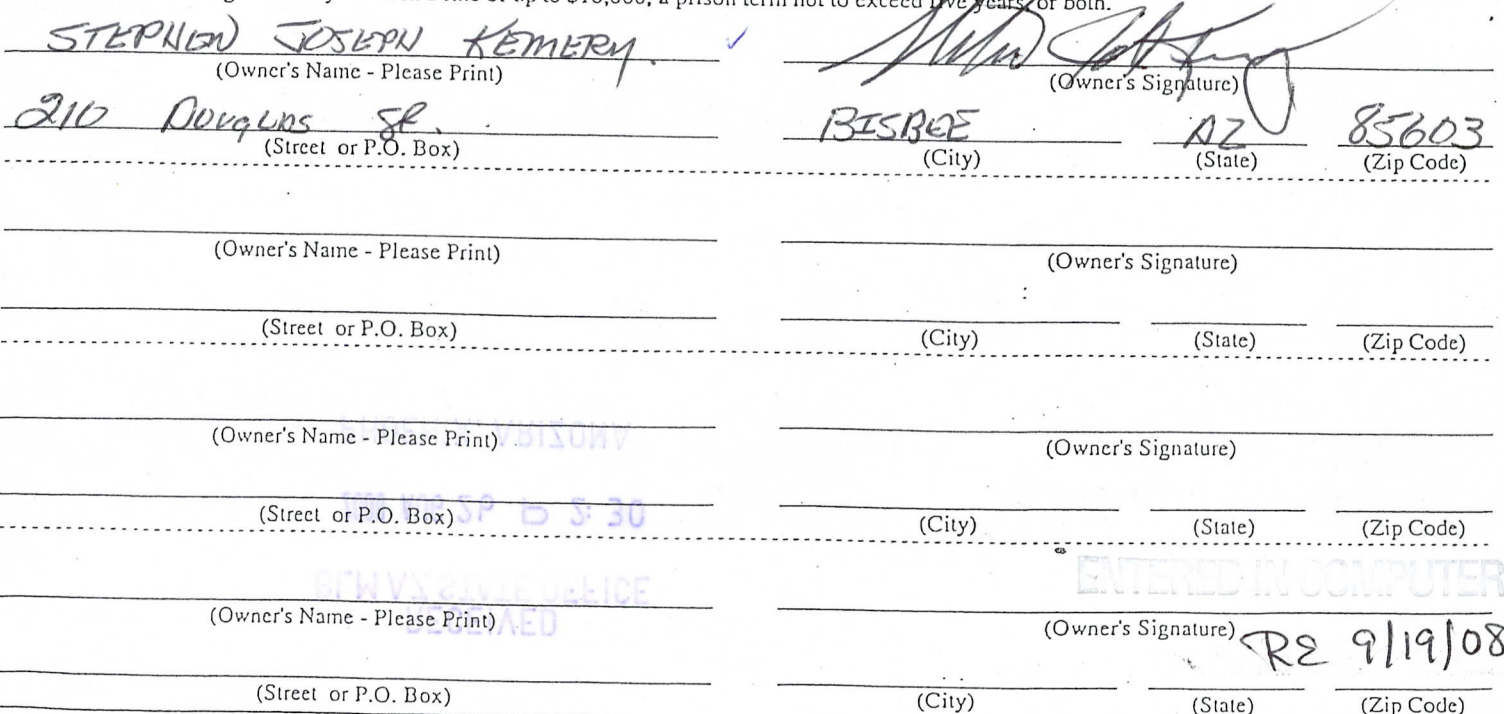 a prison term not to exceed five years, or both.
STEPHEN JOSEPH KEMERY. ✓
(Owner's Name - Please Print) (Owner's Signature)
210 DOUGLAS ST. BISBEE AZ 85603
(Street or P.O. Box) (City) (State) (Zip Code)
(Owner's Name - Please Print) (Owner's Signature)
(Street or P.O. Box) (City) (State) (Zip Code)
ARIZONA
(Owner's Name - Please Print) (Owner's Signature)
P 2:30
(Street or P.O. Box) (City) (State) (Zip Code)
BLM AZ STATE OFFICE ENTERED IN COMPUTER
(Owner's Name - Please Print) (Owner's Signature)
RECEIVED RE 9/19/08
(Street or P.O. Box) (City) (State) (Zip Code)